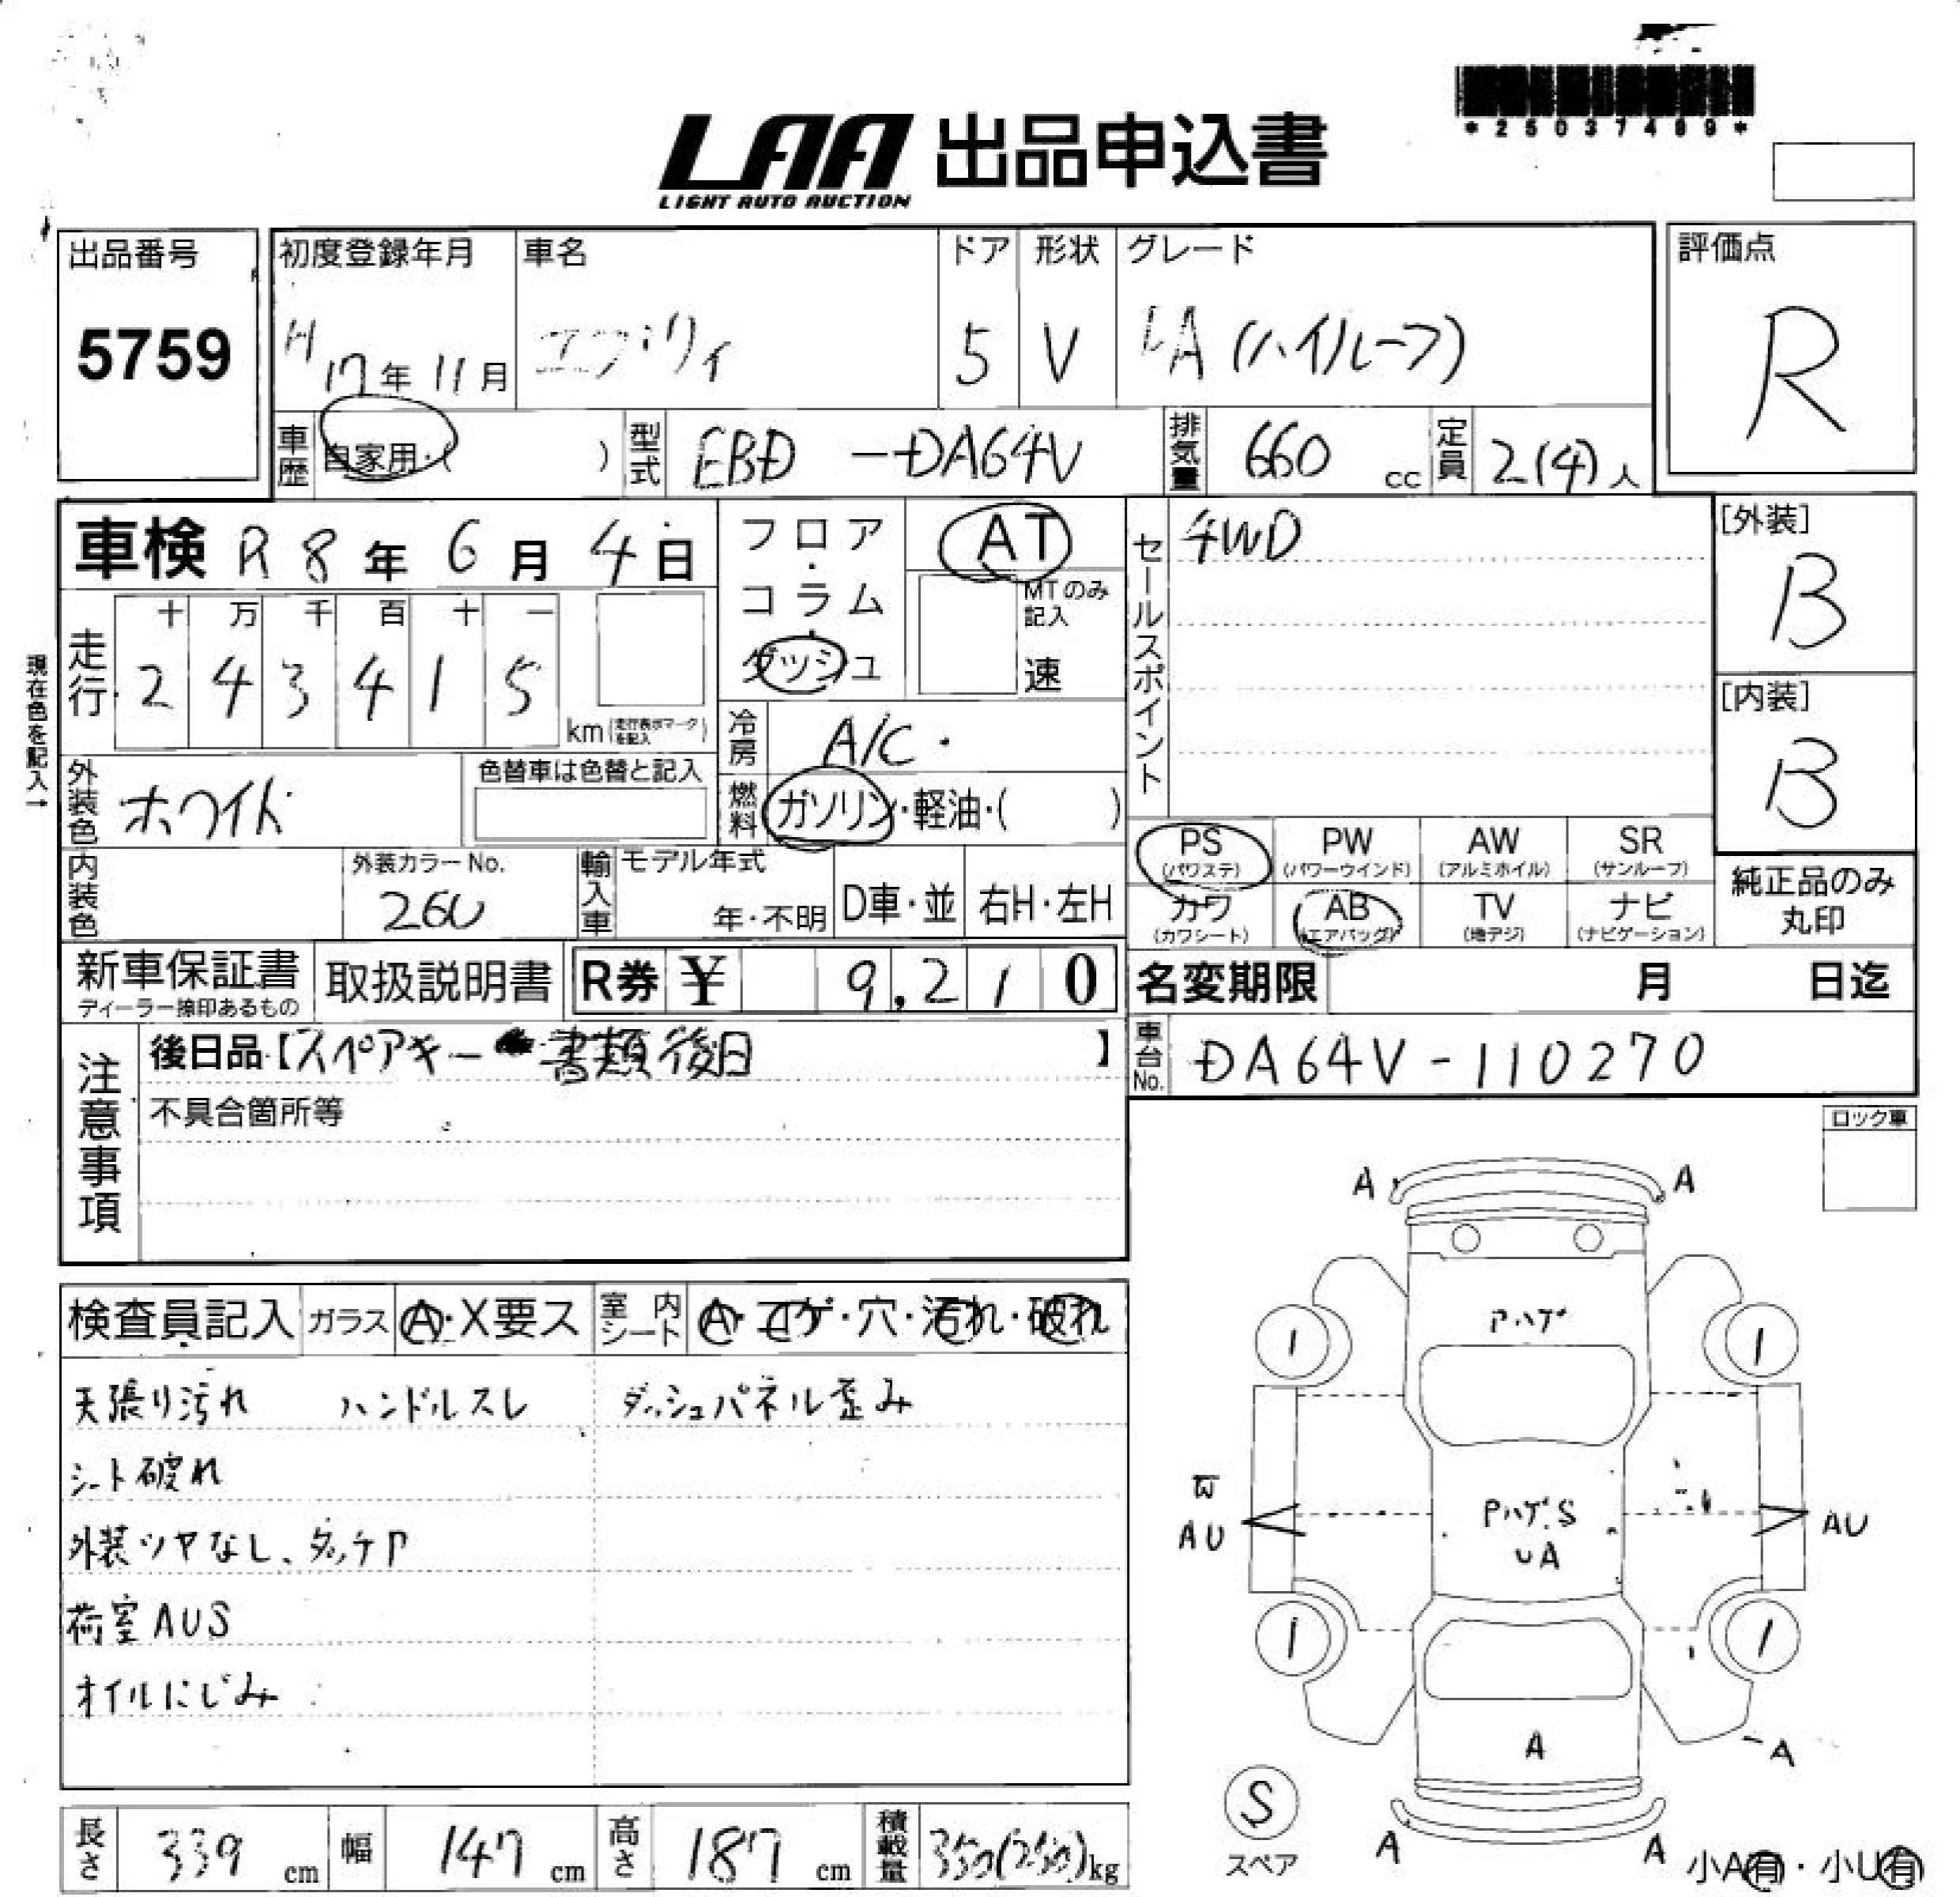 *25037499*
LAA 出品申込書
LIGHT AUTO AUCTION
出品番号 初度登録年月 車名 ドア 形状 グレード 評価点
5759 H17年11月 エブリィ 5 V (ハイルーフ) R
車歴 自家用・( ) 型式 EBD -DA64V 排気量 660 cc 定員 2(4)人
車検 R8年6月4日 フロア・コラム・ダッシュ AT
MTのみ記入 速
セールスポイント 4WD
[外装] B
走行 十 万 千 百 十 一
2 4 3 4 1 5 km (走行表示マークを記入)
現在色を記入→
[内装] B
冷房 A/C
外装色 ホワイト 色替車は色替と記入 燃料 ガソリン・軽油・( )
PS (パワステ) PW (パワーウインド) AW (アルミホイル) SR (サンルーフ)
内装色 外装カラーNo. 26U 輸入車 モデル年式 年・不明 D車・並 右H・左H
カワ (カワシート) AB (エアバッグ) TV (地デジ) ナビ (ナビゲーション)
純正品のみ丸印
新車保証書 ディーラー捺印あるもの 取扱説明書 R券 ¥ 9,210 名変期限 月 日迄
注意事項 後日品【スペアキー 書類後日】 車台No. DA64V-110270
不具合箇所等
ロック車
A A
検査員記入 ガラス A・X要ス 室内シート A・コゲ・穴・汚れ・破れ
Pハゲ
1 1
天張り汚れ ハンドルスレ ダッシュパネル歪み
シート破れ
Pハゲ.S
UA
AU AU
外装ツヤなし、タッチP
荷室AUS
1 1
オイルにじみ
A
A
S
スペア
A A
小A有・小U有
長さ 339 cm 幅 147 cm 高さ 187 cm 積載量 350(250)kg